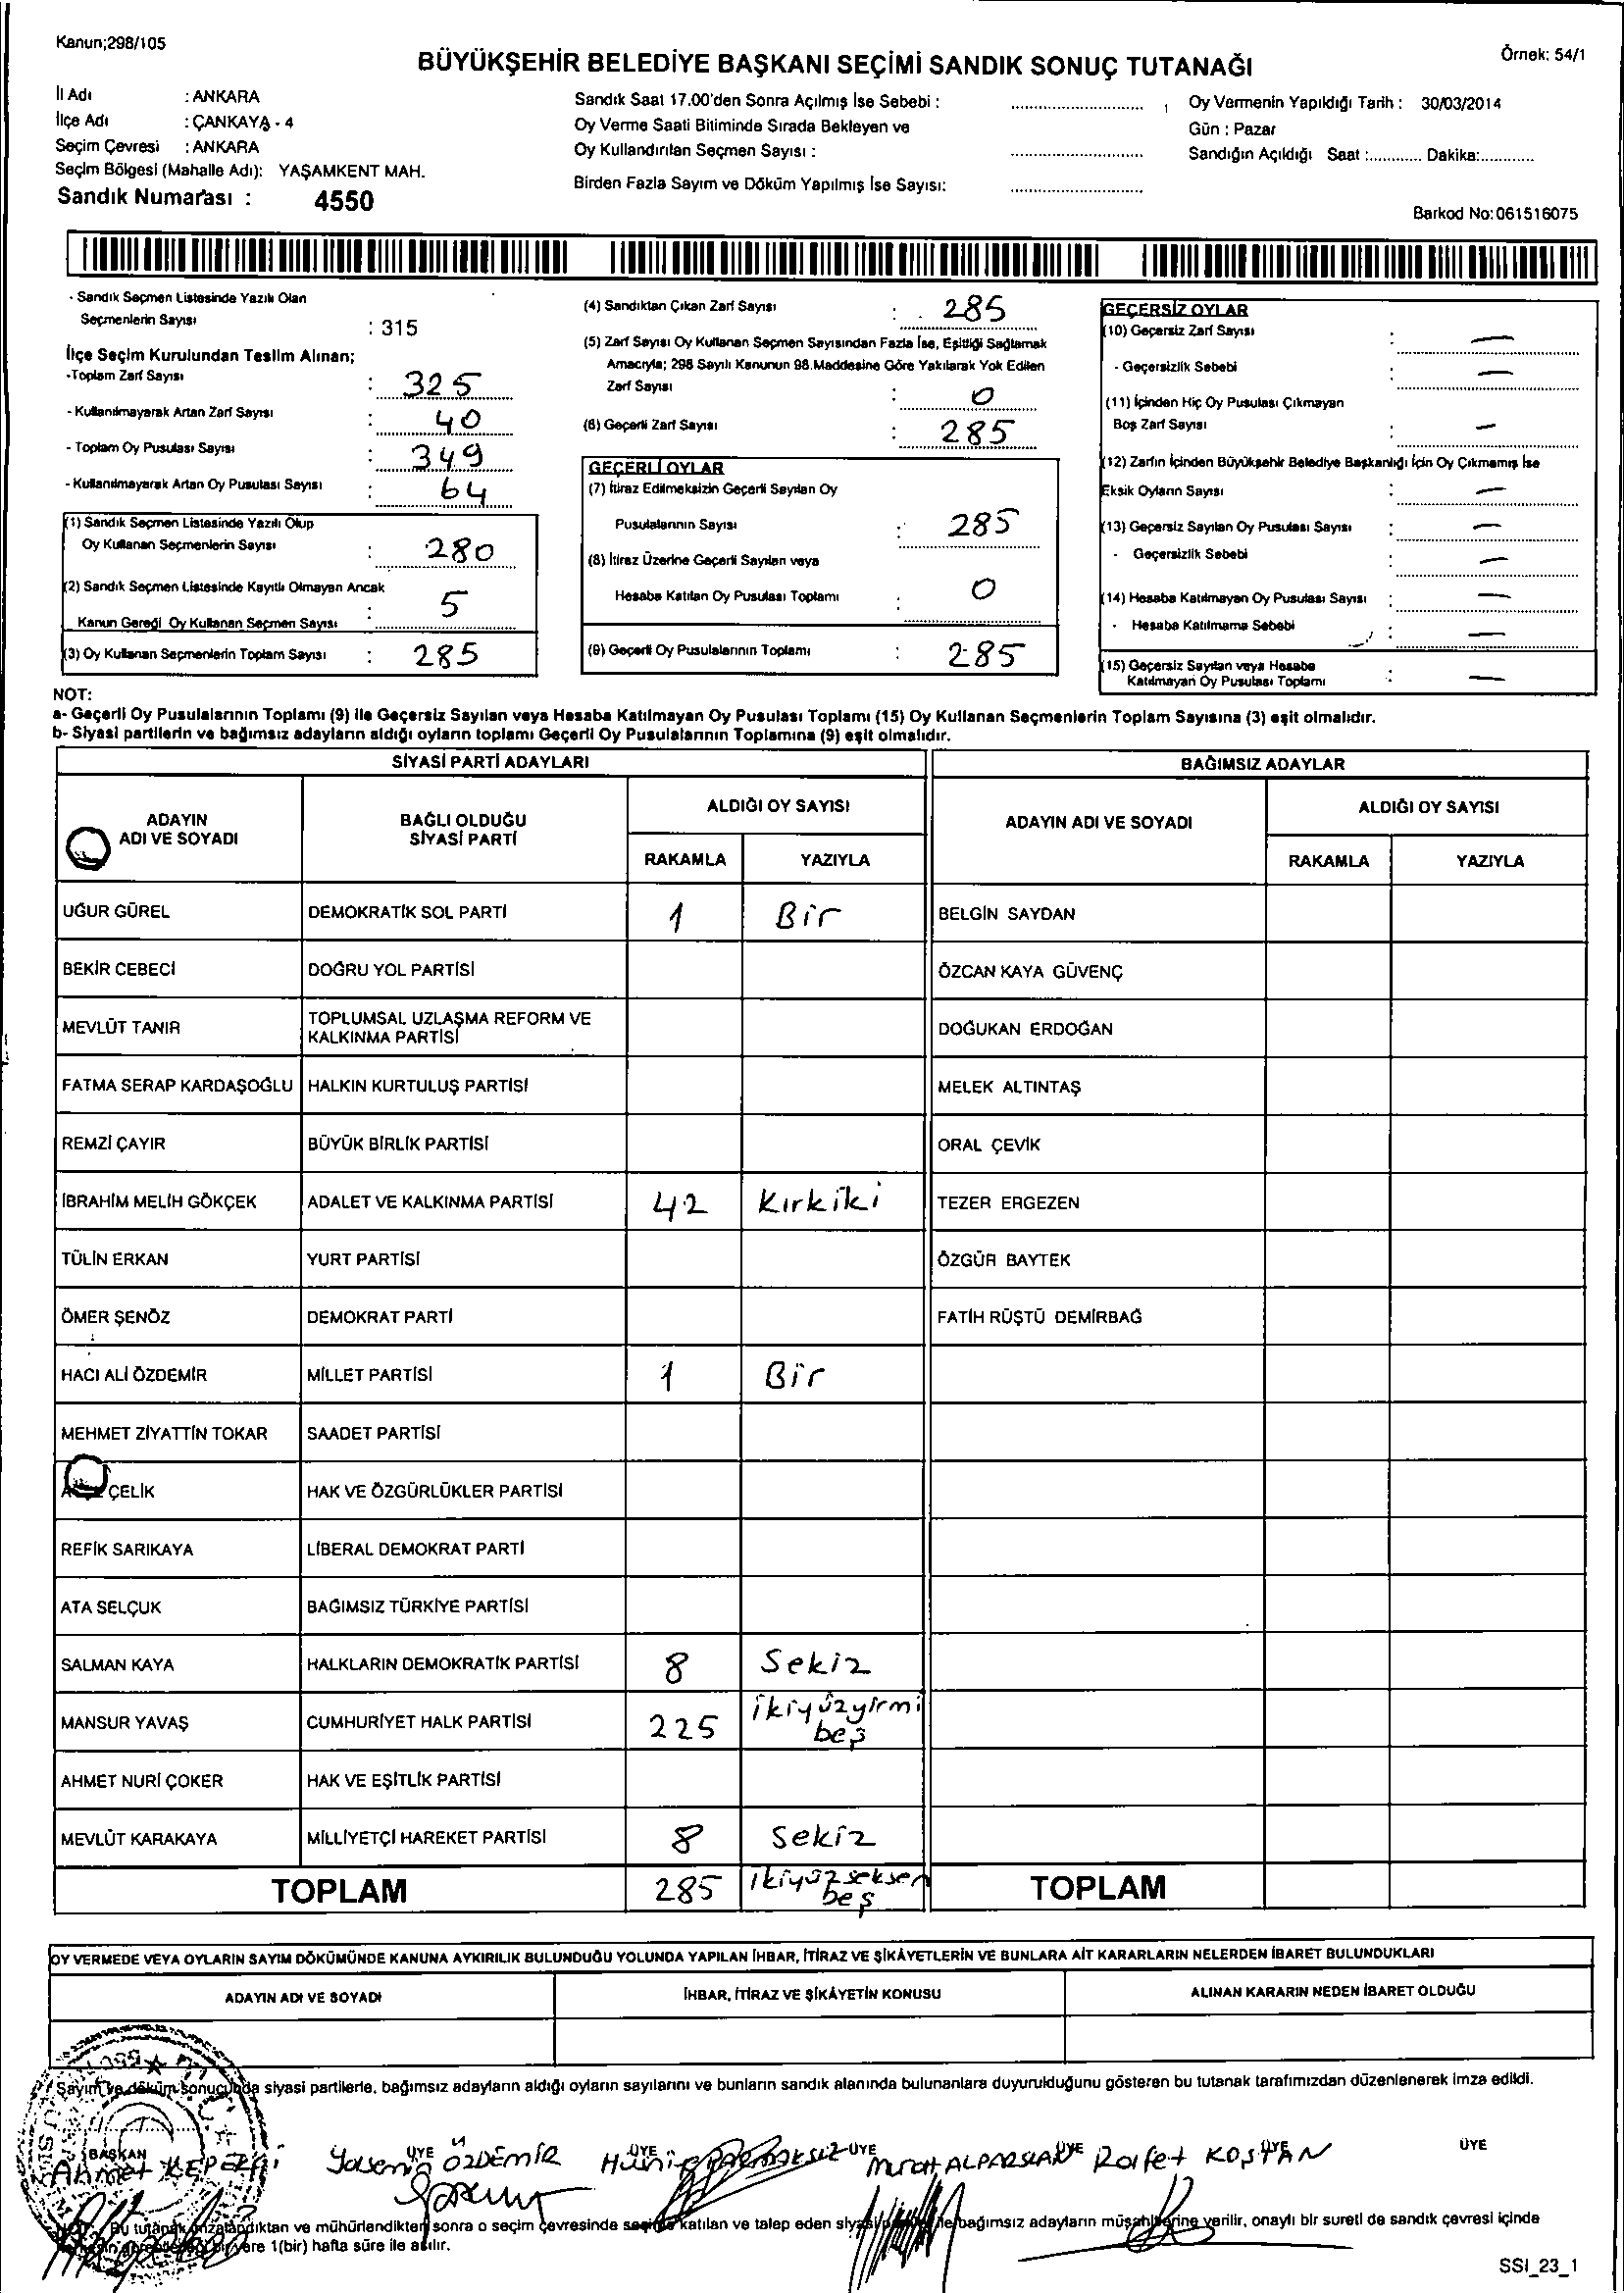 Kanun;298/105
Örnek: 54/1
BÜYÜKŞEHİR BELEDİYE BAŞKANI SEÇİMİ SANDIK SONUÇ TUTANAĞI
İl Adı : ANKARA
İlçe Adı : ÇANKAYA - 4
Seçim Çevresi : ANKARA
Seçim Bölgesi (Mahalle Adı): YAŞAMKENT MAH.
Sandık Numarası : 4550
Sandık Saat 17.00'den Sonra Açılmış İse Sebebi :
Oy Verme Saati Bitiminde Sırada Bekleyen ve
Oy Kullandırılan Seçmen Sayısı :
Birden Fazla Sayım ve Döküm Yapılmış İse Sayısı:
Oy Vermenin Yapıldığı Tarih : 30/03/2014
Gün : Pazar
Sandığın Açıldığı Saat :............ Dakika:............
Barkod No:061516075
- Sandık Seçmen Listesinde Yazılı Olan
Seçmenlerin Sayısı : 315
İlçe Seçim Kurulundan Teslim Alınan;
-Toplam Zarf Sayısı : 325
- Kullanılmayarak Artan Zarf Sayısı : 40
- Toplam Oy Pusulası Sayısı : 349
- Kullanılmayarak Artan Oy Pusulası Sayısı : 64
(1) Sandık Seçmen Listesinde Yazılı Olup
Oy Kullanan Seçmenlerin Sayısı : 280
(2) Sandık Seçmen Listesinde Kayıtlı Olmayan Ancak
Kanun Gereği Oy Kullanan Seçmen Sayısı : 5
(3) Oy Kullanan Seçmenlerin Toplam Sayısı : 285
(4) Sandıktan Çıkan Zarf Sayısı : 285
(5) Zarf Sayısı Oy Kullanan Seçmen Sayısından Fazla İse, Eşitliği Sağlamak
Amacıyla; 298 Sayılı Kanunun 98.Maddesine Göre Yakılarak Yok Edilen
Zarf Sayısı : 0
(6) Geçerli Zarf Sayısı : 285
GEÇERLİ OYLAR
(7) İtiraz Edilmeksizin Geçerli Sayılan Oy
Pusulalarının Sayısı : 285
(8) İtiraz Üzerine Geçerli Sayılan veya
Hesaba Katılan Oy Pusulası Toplamı : 0
(9) Geçerli Oy Pusulalarının Toplamı : 285
GEÇERSİZ OYLAR
(10) Geçersiz Zarf Sayısı : —
- Geçersizlik Sebebi : —
(11) İçinden Hiç Oy Pusulası Çıkmayan
Boş Zarf Sayısı : —
(12) Zarfın İçinden Büyükşehir Belediye Başkanlığı İçin Oy Çıkmamış İse
Eksik Oyların Sayısı : —
(13) Geçersiz Sayılan Oy Pusulası Sayısı : —
- Geçersizlik Sebebi : —
(14) Hesaba Katılmayan Oy Pusulası Sayısı : —
- Hesaba Katılmama Sebebi : —
(15) Geçersiz Sayılan veya Hesaba
Katılmayan Oy Pusulası Toplamı : —
NOT:
a- Geçerli Oy Pusulalarının Toplamı (9) ile Geçersiz Sayılan veya Hesaba Katılmayan Oy Pusulası Toplamı (15) Oy Kullanan Seçmenlerin Toplam Sayısına (3) eşit olmalıdır.
b- Siyasi partilerin ve bağımsız adayların aldığı oyların toplamı Geçerli Oy Pusulalarının Toplamına (9) eşit olmalıdır.
SİYASİ PARTİ ADAYLARI BAĞIMSIZ ADAYLAR
ADAYIN ADI VE SOYADI BAĞLI OLDUĞU SİYASİ PARTİ ALDIĞI OY SAYISI ADAYIN ADI VE SOYADI ALDIĞI OY SAYISI
RAKAMLA YAZIYLA RAKAMLA YAZIYLA
UĞUR GÜREL DEMOKRATİK SOL PARTİ 1 Bir BELGİN SAYDAN
BEKİR CEBECİ DOĞRU YOL PARTİSİ ÖZCAN KAYA GÜVENÇ
MEVLÜT TANIR TOPLUMSAL UZLAŞMA REFORM VE KALKINMA PARTİSİ DOĞUKAN ERDOĞAN
FATMA SERAP KARDAŞOĞLU HALKIN KURTULUŞ PARTİSİ MELEK ALTINTAŞ
REMZİ ÇAYIR BÜYÜK BİRLİK PARTİSİ ORAL ÇEVİK
İBRAHİM MELİH GÖKÇEK ADALET VE KALKINMA PARTİSİ 42 Kırkiki TEZER ERGEZEN
TÜLİN ERKAN YURT PARTİSİ ÖZGÜR BAYTEK
ÖMER ŞENÖZ DEMOKRAT PARTİ FATİH RÜŞTÜ DEMİRBAĞ
HACI ALİ ÖZDEMİR MİLLET PARTİSİ 1 Bir
MEHMET ZİYATTİN TOKAR SAADET PARTİSİ
ÇELİK HAK VE ÖZGÜRLÜKLER PARTİSİ
REFİK SARIKAYA LİBERAL DEMOKRAT PARTİ
ATA SELÇUK BAĞIMSIZ TÜRKİYE PARTİSİ
SALMAN KAYA HALKLARIN DEMOKRATİK PARTİSİ 8 Sekiz
MANSUR YAVAŞ CUMHURİYET HALK PARTİSİ 225 ikiyüzyirmi beş
AHMET NURİ ÇOKER HAK VE EŞİTLİK PARTİSİ
MEVLÜT KARAKAYA MİLLİYETÇİ HAREKET PARTİSİ 8 Sekiz
TOPLAM 285 ikiyüzseksen beş TOPLAM
OY VERMEDE VEYA OYLARIN SAYIM DÖKÜMÜNDE KANUNA AYKIRILIK BULUNDUĞU YOLUNDA YAPILAN İHBAR, İTİRAZ VE ŞİKÂYETLERİN VE BUNLARA AİT KARARLARIN NELERDEN İBARET BULUNDUKLARI
ADAYIN ADI VE SOYADI İHBAR, İTİRAZ VE ŞİKÂYETİN KONUSU ALINAN KARARIN NEDEN İBARET OLDUĞU
Sayım ve döküm sonucunda siyasi partilerle, bağımsız adayların aldığı oyların sayılarını ve bunların sandık alanında bulunanlara duyurulduğunu gösteren bu tutanak tarafımızdan düzenlenerek imza edildi.
BAŞKAN ÜYE ÜYE ÜYE ÜYE ÜYE ÜYE
Ahmet Yasemin ÖZDEMİR Murat ALPARSLAN Rafet KOŞTAN
Bu tutanak imzalandıktan ve mühürlendikten sonra o seçim çevresinde seçime katılan ve talep eden siyasi bağımsız adayların müşahitlerine verilir, onaylı bir sureti de sandık çevresi içinde
bir yere 1(bir) hafta süre ile asılır.
SSI_23_1